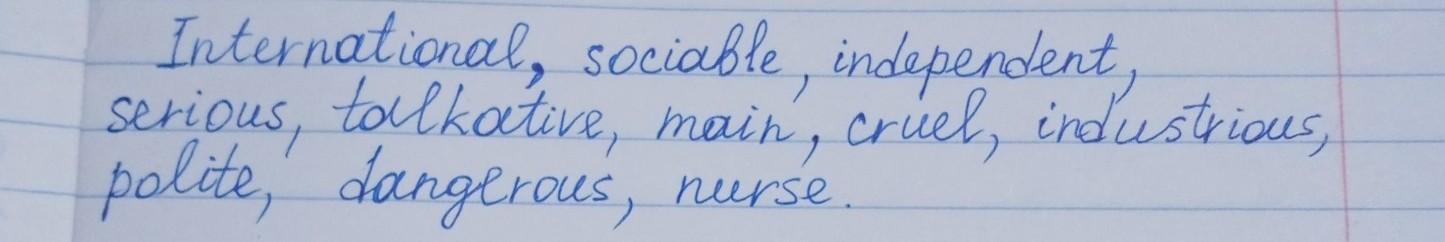 International, sociable, independent,
serious, talkative, main, cruel, industrious,
polite, dangerous, nurse.